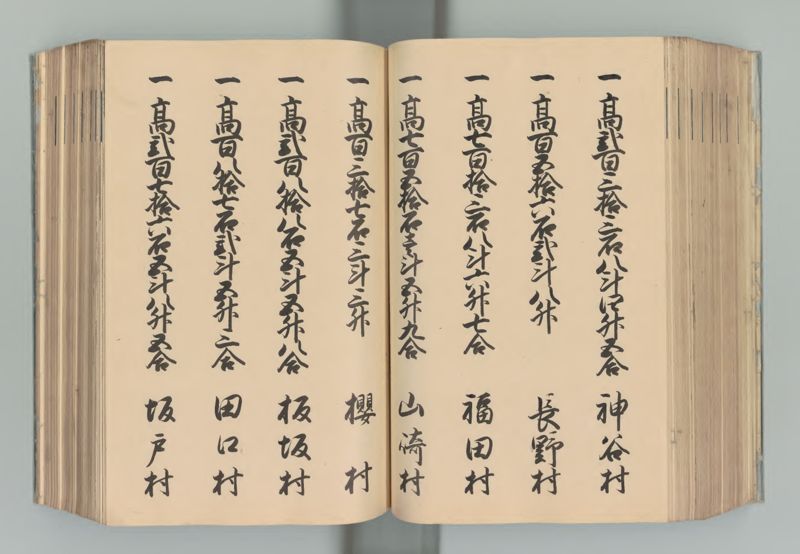 一高弐百三拾三石八斗四升五合 神谷村
一高百五拾六石弐斗八升 長野村
一高七百拾三石八斗六升七合 福田村
一高七百五拾石壱斗五升九合 山崎村
一高百三拾七石三斗三升 櫻村
一高弐百八拾八石五斗五升八合 板坂村
一高百八拾七石弐斗五升三合 田口村
一高弐百七拾六石五斗八升五合 坂戸村